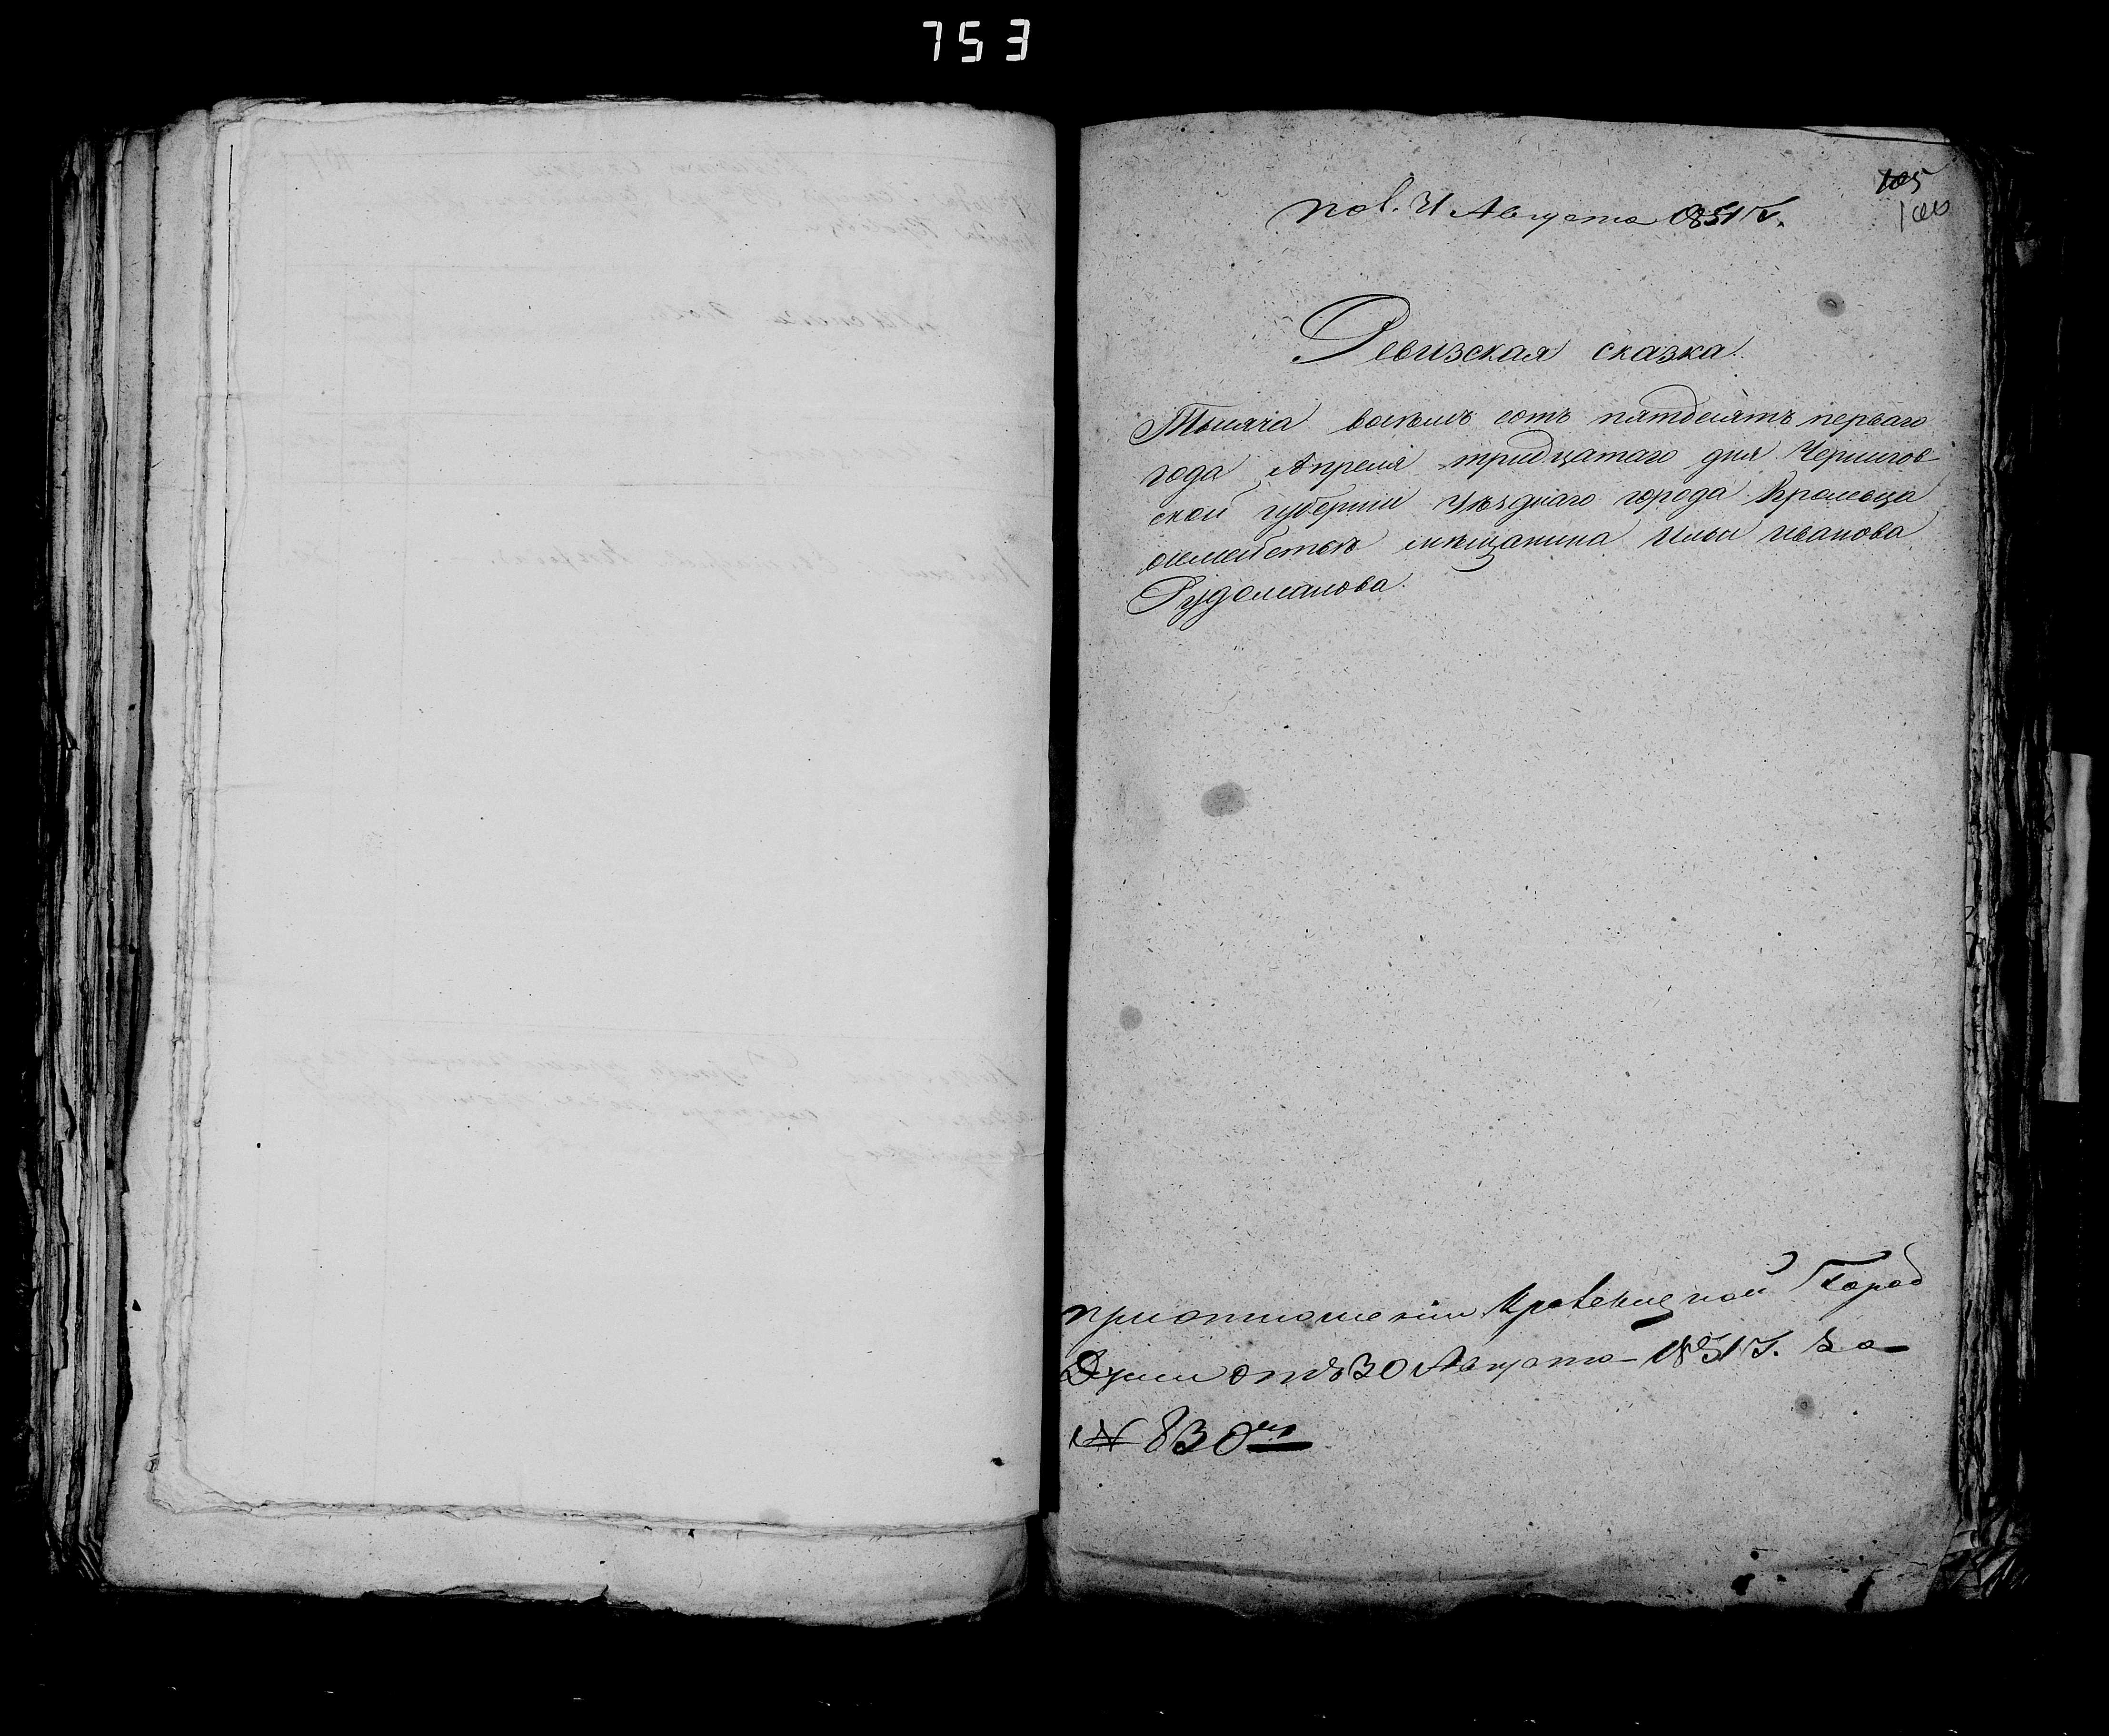 753
105
100
пол. 31 Августа 1851 г.
Ревизская сказка.
Тысяча восемь сотъ пятдесятъ перваго
года Апреля тридцатаго дня Чернигов
ской губернии Уѣзднаго города Кролевца
о семействѣ мѣщанина Ильи Иванова
Рудоманова.
При отношении Кролевецкой Город
Думы отъ 30 Августа 1851 г. за
№ 830м